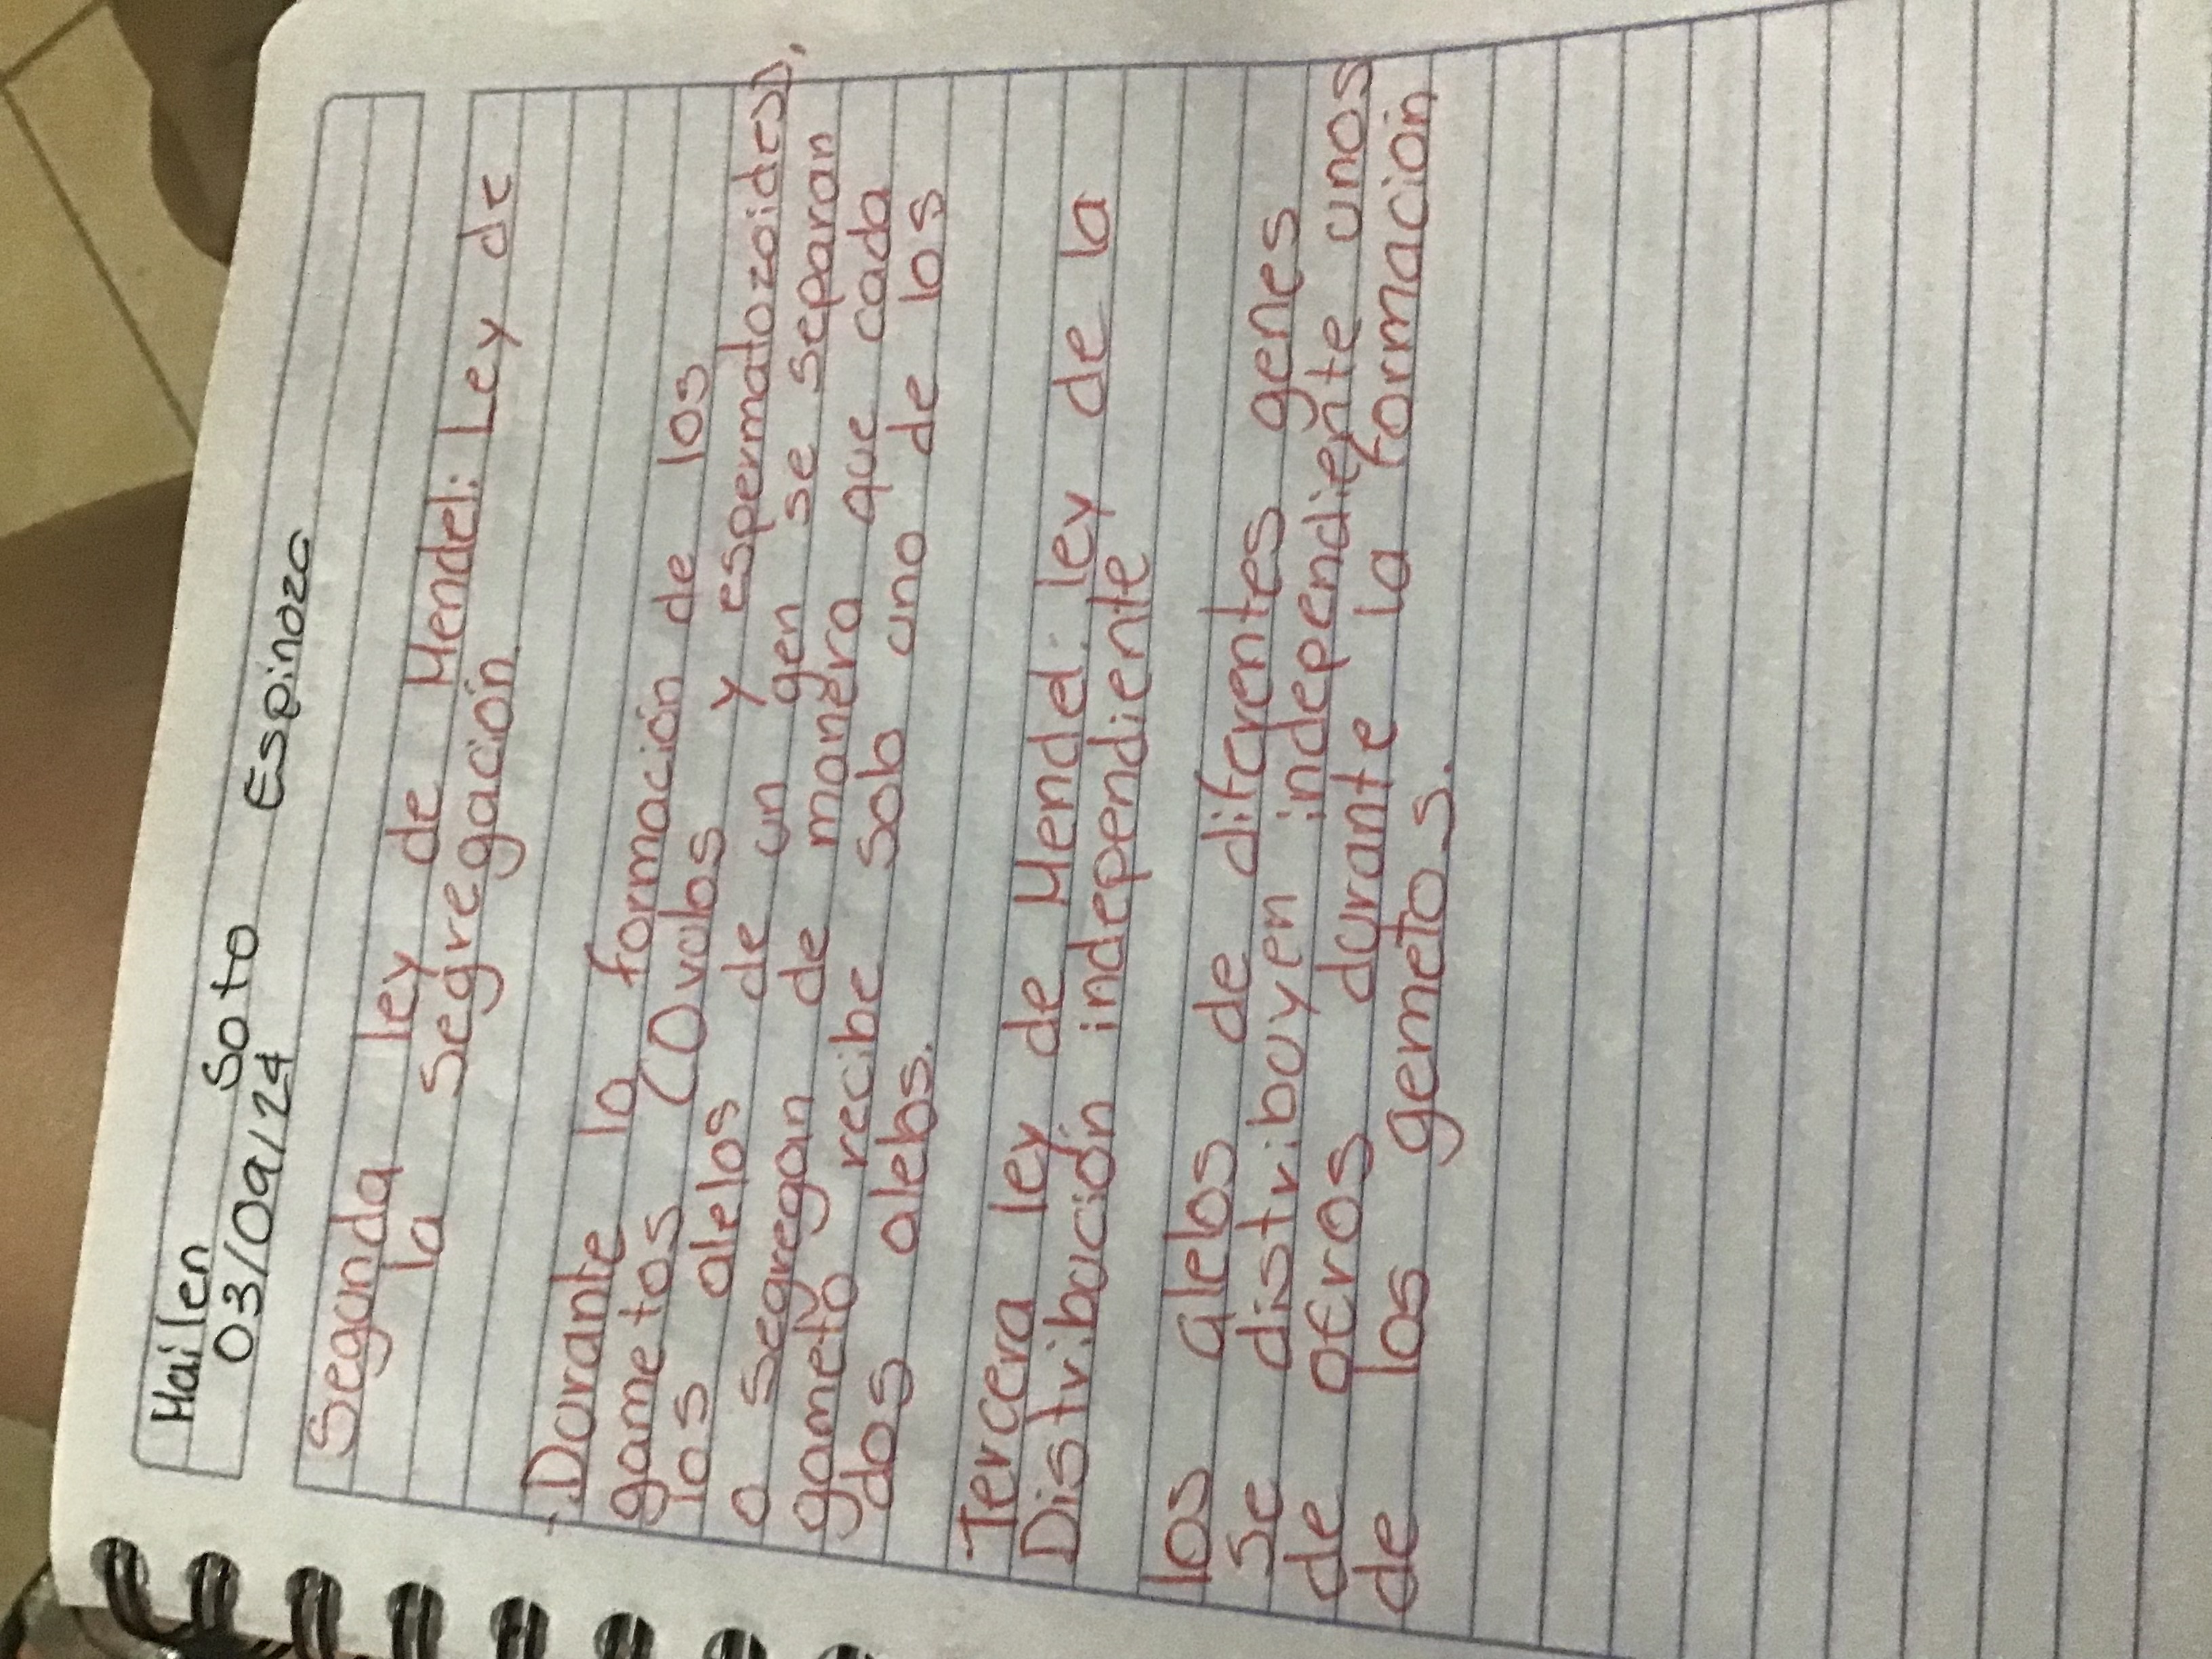 Mailen Soto Espinoza
03/09/24
Segunda ley de Mendel: Ley de
la segregación.
Durante la formación de los
gametos (Ovulos y espermatozoides),
los alelos de un gen se separan
o segregan de manera que cada
gameto recibe solo uno de los
dos alelos.
Tercera ley de Mendel: ley de la
Distribución independiente
los alelos de diferentes genes
se distribuyen independiente unos
de otros durante la formación
de los gemetos.